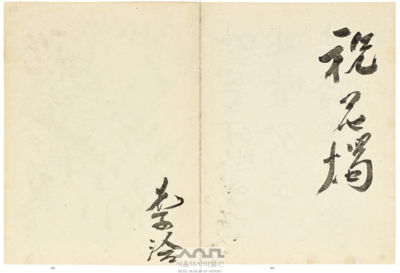 祝君燭
李洽
서울역사박물관
SEOUL MUSEUM OF HISTORY